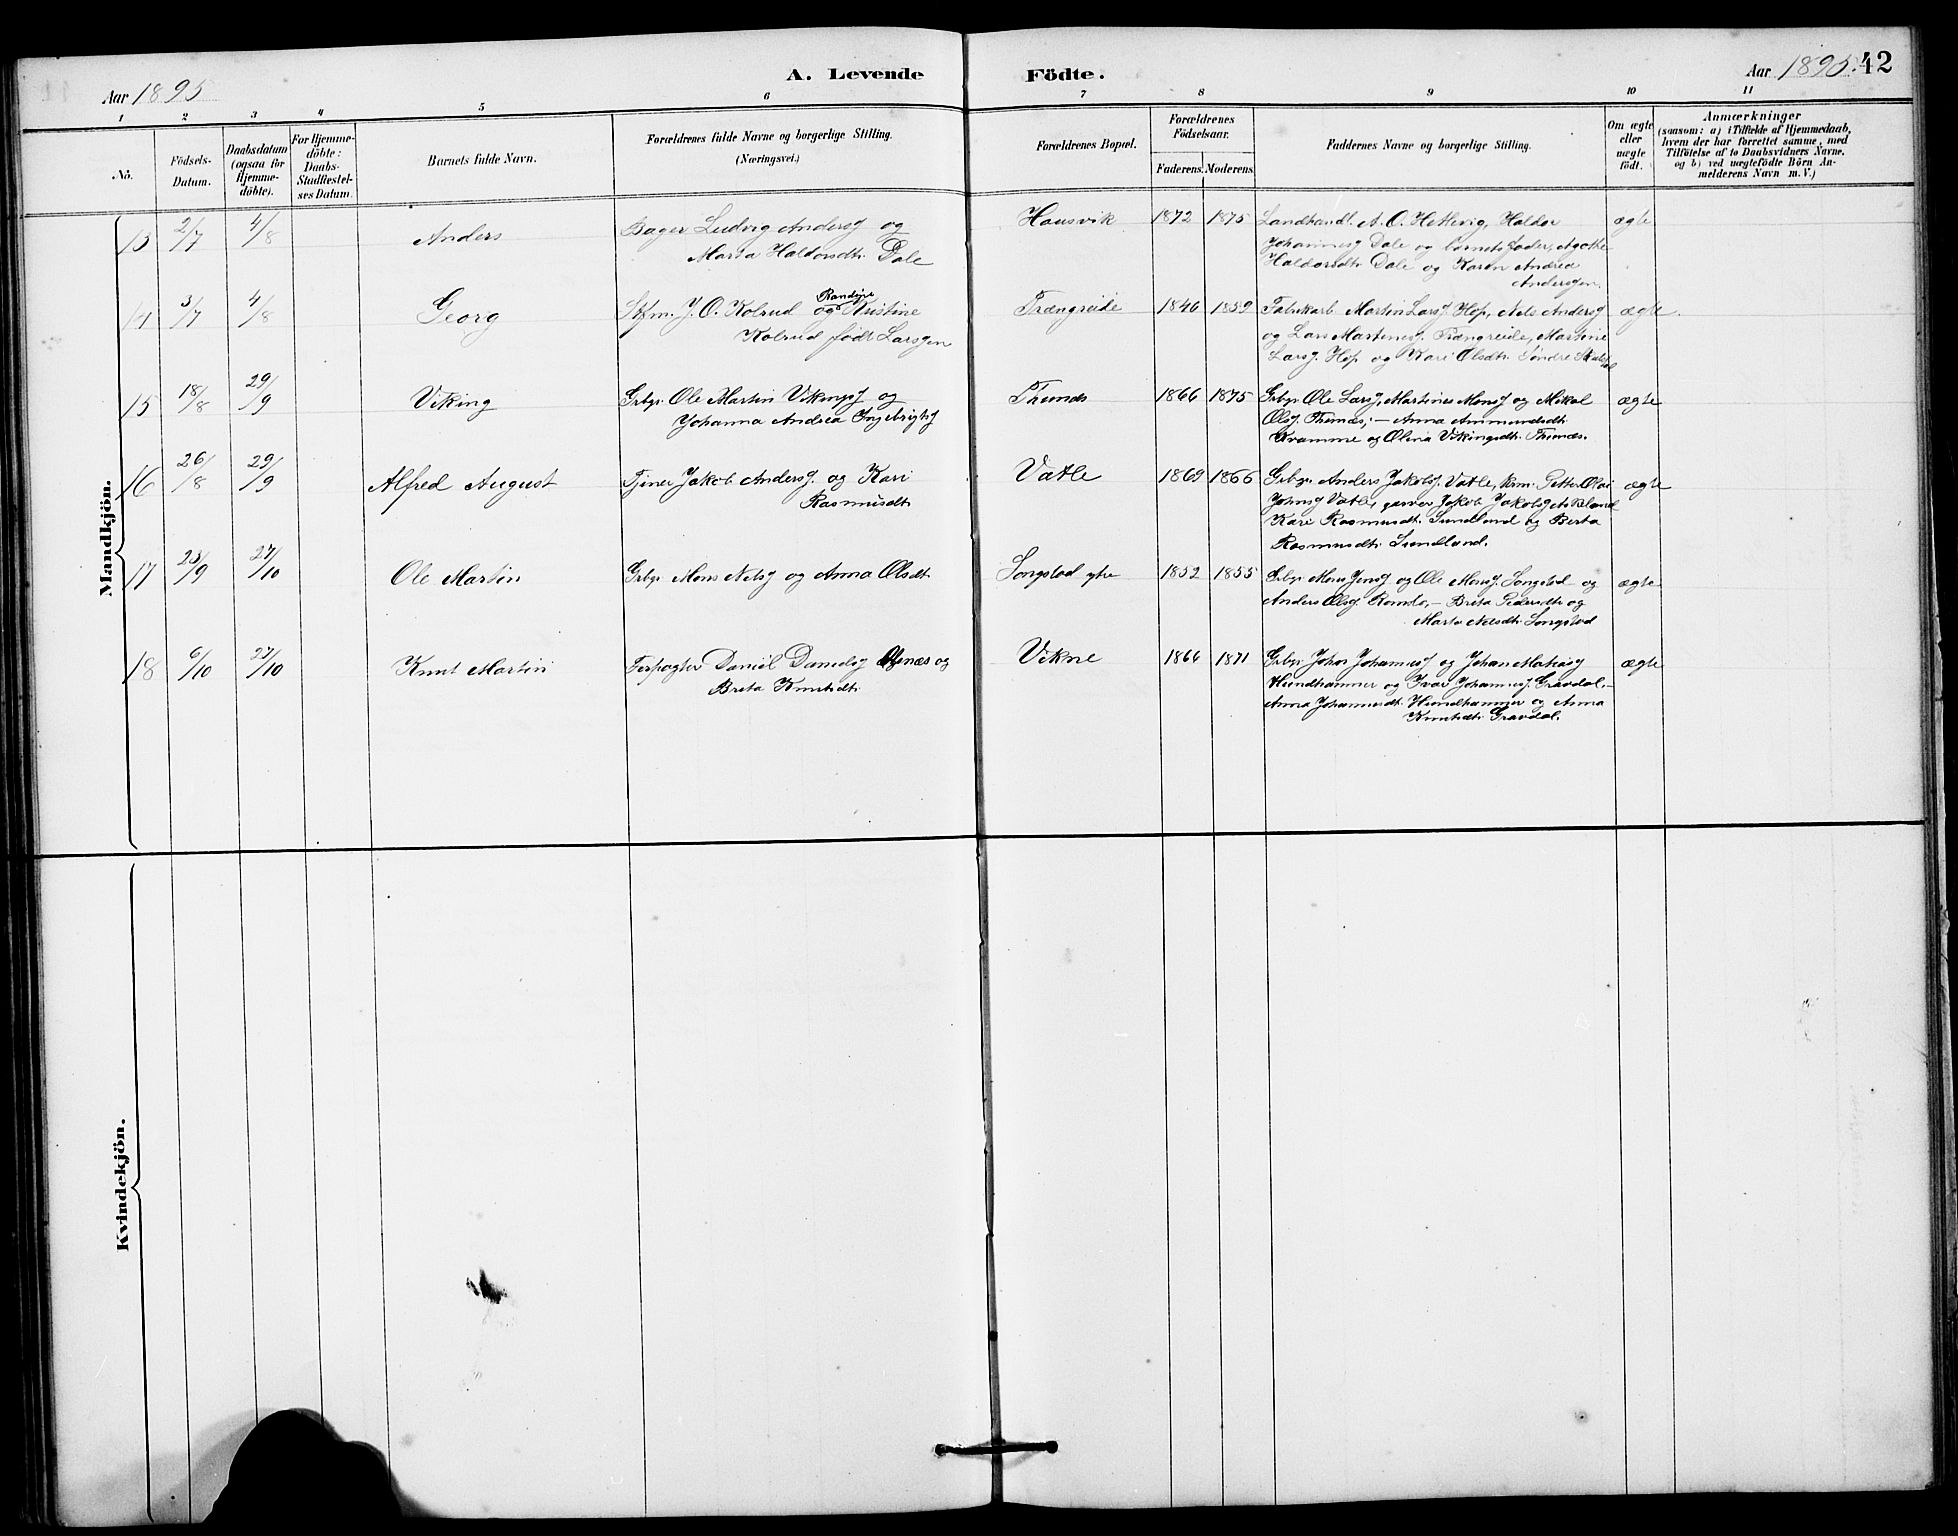 Aar 1895
A. Levende Födte.
Aar 1895. 42
1 2 3 4 5 6 7 8 9 10 11
No.
Födsels-
Datum.
Daabsdatum
(ogsaa for
Hjemme-
döbte).
For Hjemme-
döbte:
Daabs-
Stadfæstel-
ses Datum.
Barnets fulde Navn.
Forældrenes fulde Navne og borgerlige Stilling.
(Næringsvei.)
Forældrenes Bopæl.
Forældrenes
Födselsaar.
Faderens. Moderens.
Faddernes Navne og borgerlige Stilling.
Om ægte
eller
uægte
födt.
Anmærkninger
(saasom: a) i Tilfælde af Hjemmedaab,
hvem der har forrettet samme, med
Tilföielse af to Daabsvidners Navne,
og b) ved uægtefödte Börn An-
melderens Navn m. V.)
Mandkjön.
13 2/7 4/8 Anders
Bager Ludvig Andersg og
Marta Haldorsdtr. Dale
Hausvik 1872 1875
Landhandl. A. O. Hetlevig, Haldor
Johannesg Dale og barnets fader, Agathe
Haldorsdtr. Dale og Karen Andrea
Andersgen.
ægte
14 3/7 4/8 Georg
J. O. Kolrud og Randine Kristine
Kolrud født Larsgen
Trængreide 1846 1859
Fabrikarb. Martin Larsg Hop, Nels Andersg
og Lars Martinusg. Trængreide, Martine
Larsg. Hop og Kari Olsdtr. Søndre
ægte.
15 18/8 29/9 Viking
Grbgr. Ole Martin Vikingsg og
Johanna Andrea Ingebrigtsg
Thunæs 1866 1875
Grbgr. Ole Larsg, Martines Monsg og Mikal
Olsg. Thunæs, – Anna Ammundsdtr.
Kvamme og Olina Vikingsdtr. Thunæs.
ægte
16 26/8 29/9 Alfred August
Tjener Jakob Andersg. og Kari
Rasmusdtr.
Vatle 1869 1866
Grbgr. Anders Jakobsg. Vatle, krm. Petter Olai
Johnsg Vatle, garver Jakob Jakobsg
Kari Rasmusdtr. Sundland og Berta
Rasmusdtr. Sundland.
ægte
17 23/9 27/10 Ole Martin
Grbgr. Mons Nelsg og Anna Olsdtr.
Songstad ytre 1852 1855
Grbgr. Mons Jensg og Ole Monsg. Songstad og
Anders Olsg Romslo, – Brita Pedersdtr. og
Marta Nelsdtr. Songstad
ægte
18 6/10 27/10 Knut Martin
Daniel Danielsg og
Brita Knutsdtr.
Vikne 1866 1871
Grbgr. Johs Johannesg og Johan Matiasg
Hundhammer og Ivar Johannesg. Gravdal, –
Anna Johannesdtr. Hundhammer og Anna
Knutsdtr. Gravdal.
ægte
Kvindekjön.